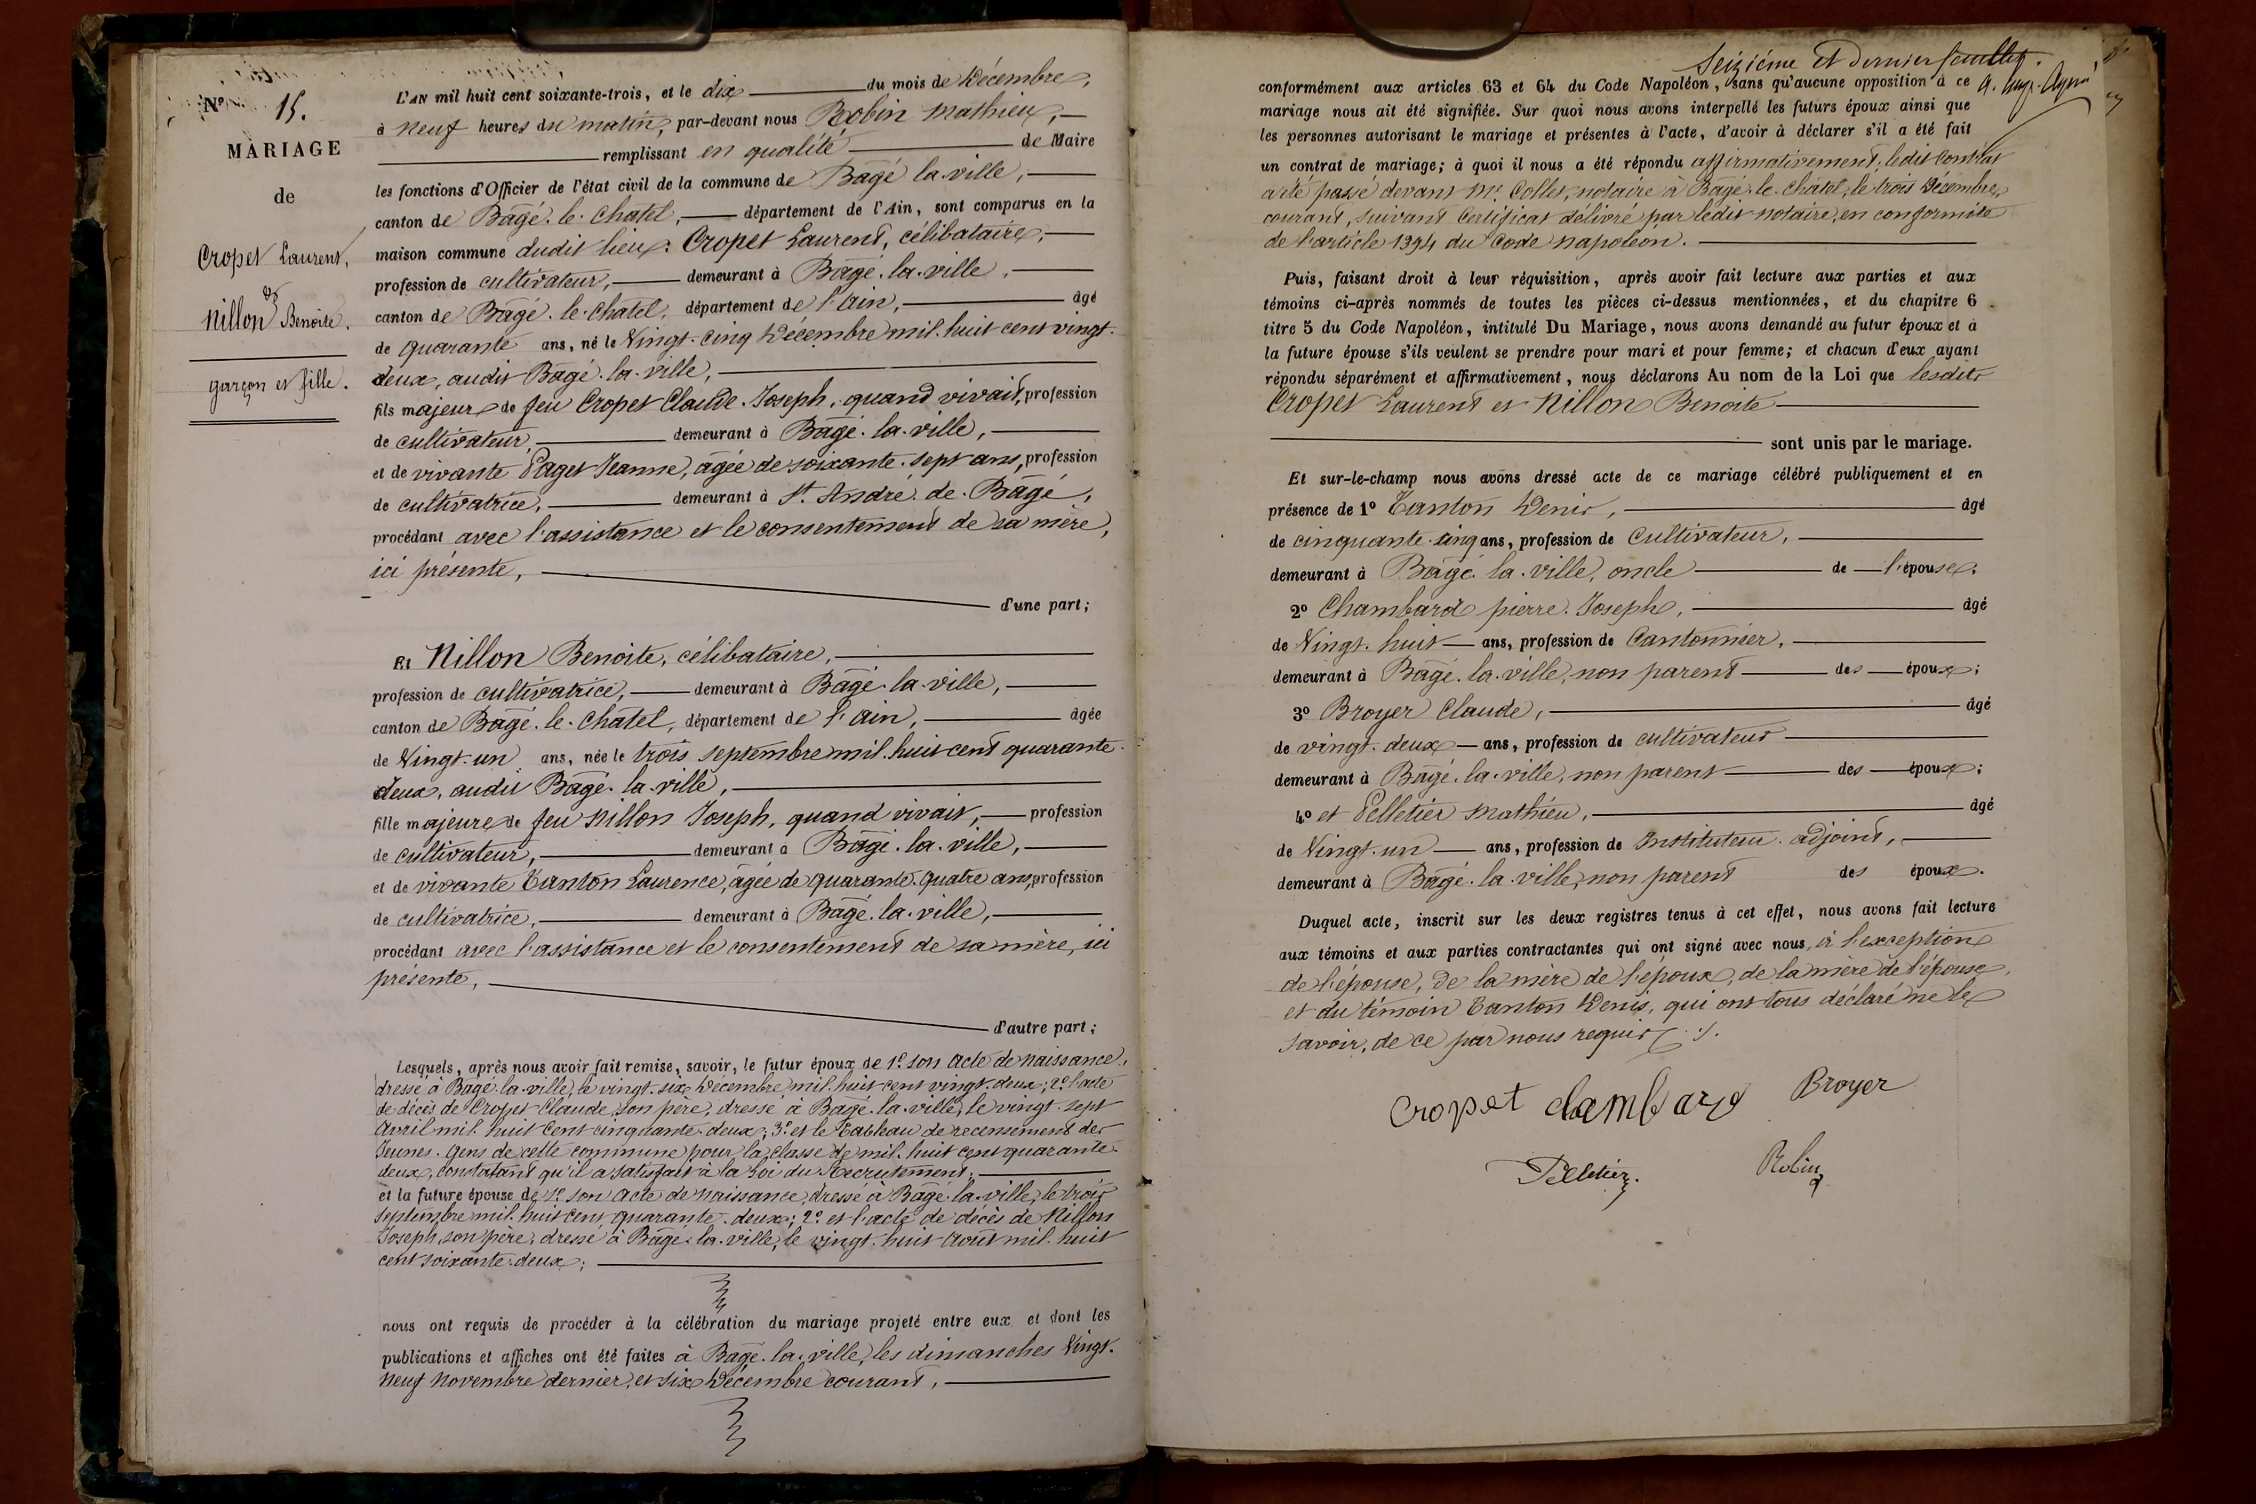 Nº 15.
MARIAGE
de
Cropet Laurent,
&
Nillon Benoite.
garçon et fille.
L'AN mil huit cent soixante-trois, et le dix du mois de Décembre,
à neuf heures du matin, par-devant nous Robin Mathieu,
remplissant en qualité de Maire
les fonctions d'Officier de l'état civil de la commune de Bâgé la-ville,
canton de Bâgé-le-Chatel, département de l'Ain, sont comparus en la
maison commune dudit lieu: Cropet Laurent, célibataire,
profession de cultivateur, demeurant à Bâgé-la-ville,
canton de Bâgé-le-Chatel, département de l'Ain, âgé
de quarante ans, né le Vingt-cinq Décembre mil-huit cent vingt-
deux, audit Bâgé-la-ville,
fils majeur de feu Cropet Claude-Joseph, quand vivait, profession
de cultivateur, demeurant à Bâgé-la-ville,
et de vivante Paget Jeanne, âgée de soixante-sept ans, profession
de cultivatrice, demeurant à St. André-de-Bâgé,
procédant avec l'assistance et le consentement de sa mère,
ici présente,
d'une part;
Et Nillon Benoite, célibataire,
profession de cultivatrice, demeurant à Bâgé-la-ville,
canton de Bâgé-le-Châtel, département de l'Ain, âgée
de Vingt-un ans, née le trois septembre mil-huit cent quarante-
deux, audit Bâgé-la-ville,
fille majeure de feu Nillon Joseph, quand vivait, profession
de cultivateur, demeurant à Bâgé-la-ville,
et de vivante Tanton Laurence, âgée de quarante-quatre ans, profession
de cultivatrice, demeurant à Bâgé-la-ville,
procédant avec l'assistance et le consentement de sa mère, ici
présente,
d'autre part;
Lesquels, après nous avoir fait remise, savoir, le futur époux de 1º son acte de naissance,
dressé à Bâgé-la-ville, le vingt-six Décembre mil-huit cent vingt-deux; 2º l'acte
de décès de Cropet Claude, son père, dressé à Bâgé-la-ville, le vingt-sept
Avril mil-huit cent cinquante-deux; 3º et le Tableau de recensement des
Jeunes-Gens de cette commune pour la classe de mil-huit cent quarante-
deux, constatant qu'il a satisfait à la Loi du Recrutement;
et la future épouse de 1º son acte de naissance, dressé à Bâgé-la-ville, le trois
septembre mil-huit cent quarante-deux; 2º et l'acte de décès de Nillon
Joseph, son père, dressé à Bâgé-la-ville, le vingt-huit Août mil-huit
cent soixante-deux;
nous ont requis de procéder à la célébration du mariage projeté entre eux et dont les
publications et affiches ont été faites à Bâgé-la-ville, les dimanches Vingt-
neuf Novembre dernier, et six Décembre courant,
Seizième et dernier feuillet.
conformément aux articles 63 et 64 du Code Napoléon, sans qu'aucune opposition à ce
mariage nous ait été signifiée. Sur quoi nous avons interpellé les futurs époux ainsi que
les personnes autorisant le mariage et présentes à l'acte, d'avoir à déclarer s'il a été fait
un contrat de mariage; à quoi il nous a été répondu affirmativement, ledit contrat
a été passé devant Mr. Collet, notaire à Bâgé-le-châtel, le trois Décembre,
courant, suivant Certificat délivré par ledit notaire, en conformité
de l'article 1394 du Code Napoléon.
Puis, faisant droit à leur réquisition, après avoir fait lecture aux parties et aux
témoins ci-après nommés de toutes les pièces ci-dessus mentionnées, et du chapitre 6
titre 5 du Code Napoléon, intitulé Du Mariage, nous avons demandé au futur époux et à
la future épouse s'ils veulent se prendre pour mari et pour femme; et chacun d'eux ayant
répondu séparément et affirmativement, nous déclarons Au nom de la Loi que lesdits
Cropet Laurent et Nillon Benoite
sont unis par le mariage.
Et sur-le-champ nous avons dressé acte de ce mariage célébré publiquement et en
présence de 1º Tanton Denis, âgé
de cinquante-cinq ans, profession de Cultivateur,
demeurant à Bâgé-la-ville, oncle de l'épouse;
2º Chambard pierre-Joseph, âgé
de Vingt-huit ans, profession de Cantonnier,
demeurant à Bâgé-la-ville, non parent des époux;
3º Broyer Claude, âgé
de vingt-deux ans, profession de cultivateur
demeurant à Bâgé-la-ville, non parent des époux;
4º et Pelletier Mathieu, âgé
de Vingt-un ans, profession de Instituteur-adjoint,
demeurant à Bâgé-la-ville, non parent des époux.
Duquel acte, inscrit sur les deux registres tenus à cet effet, nous avons fait lecture
aux témoins et aux parties contractantes qui ont signé avec nous, à l'exception
de l'épouse, de la mère de l'époux, de la mère de l'épouse,
et du témoin Tanton Denis, qui ont tous déclaré ne le
savoir, de ce par nous requis.
Cropet clambard Broyer
Pelletier. Robin